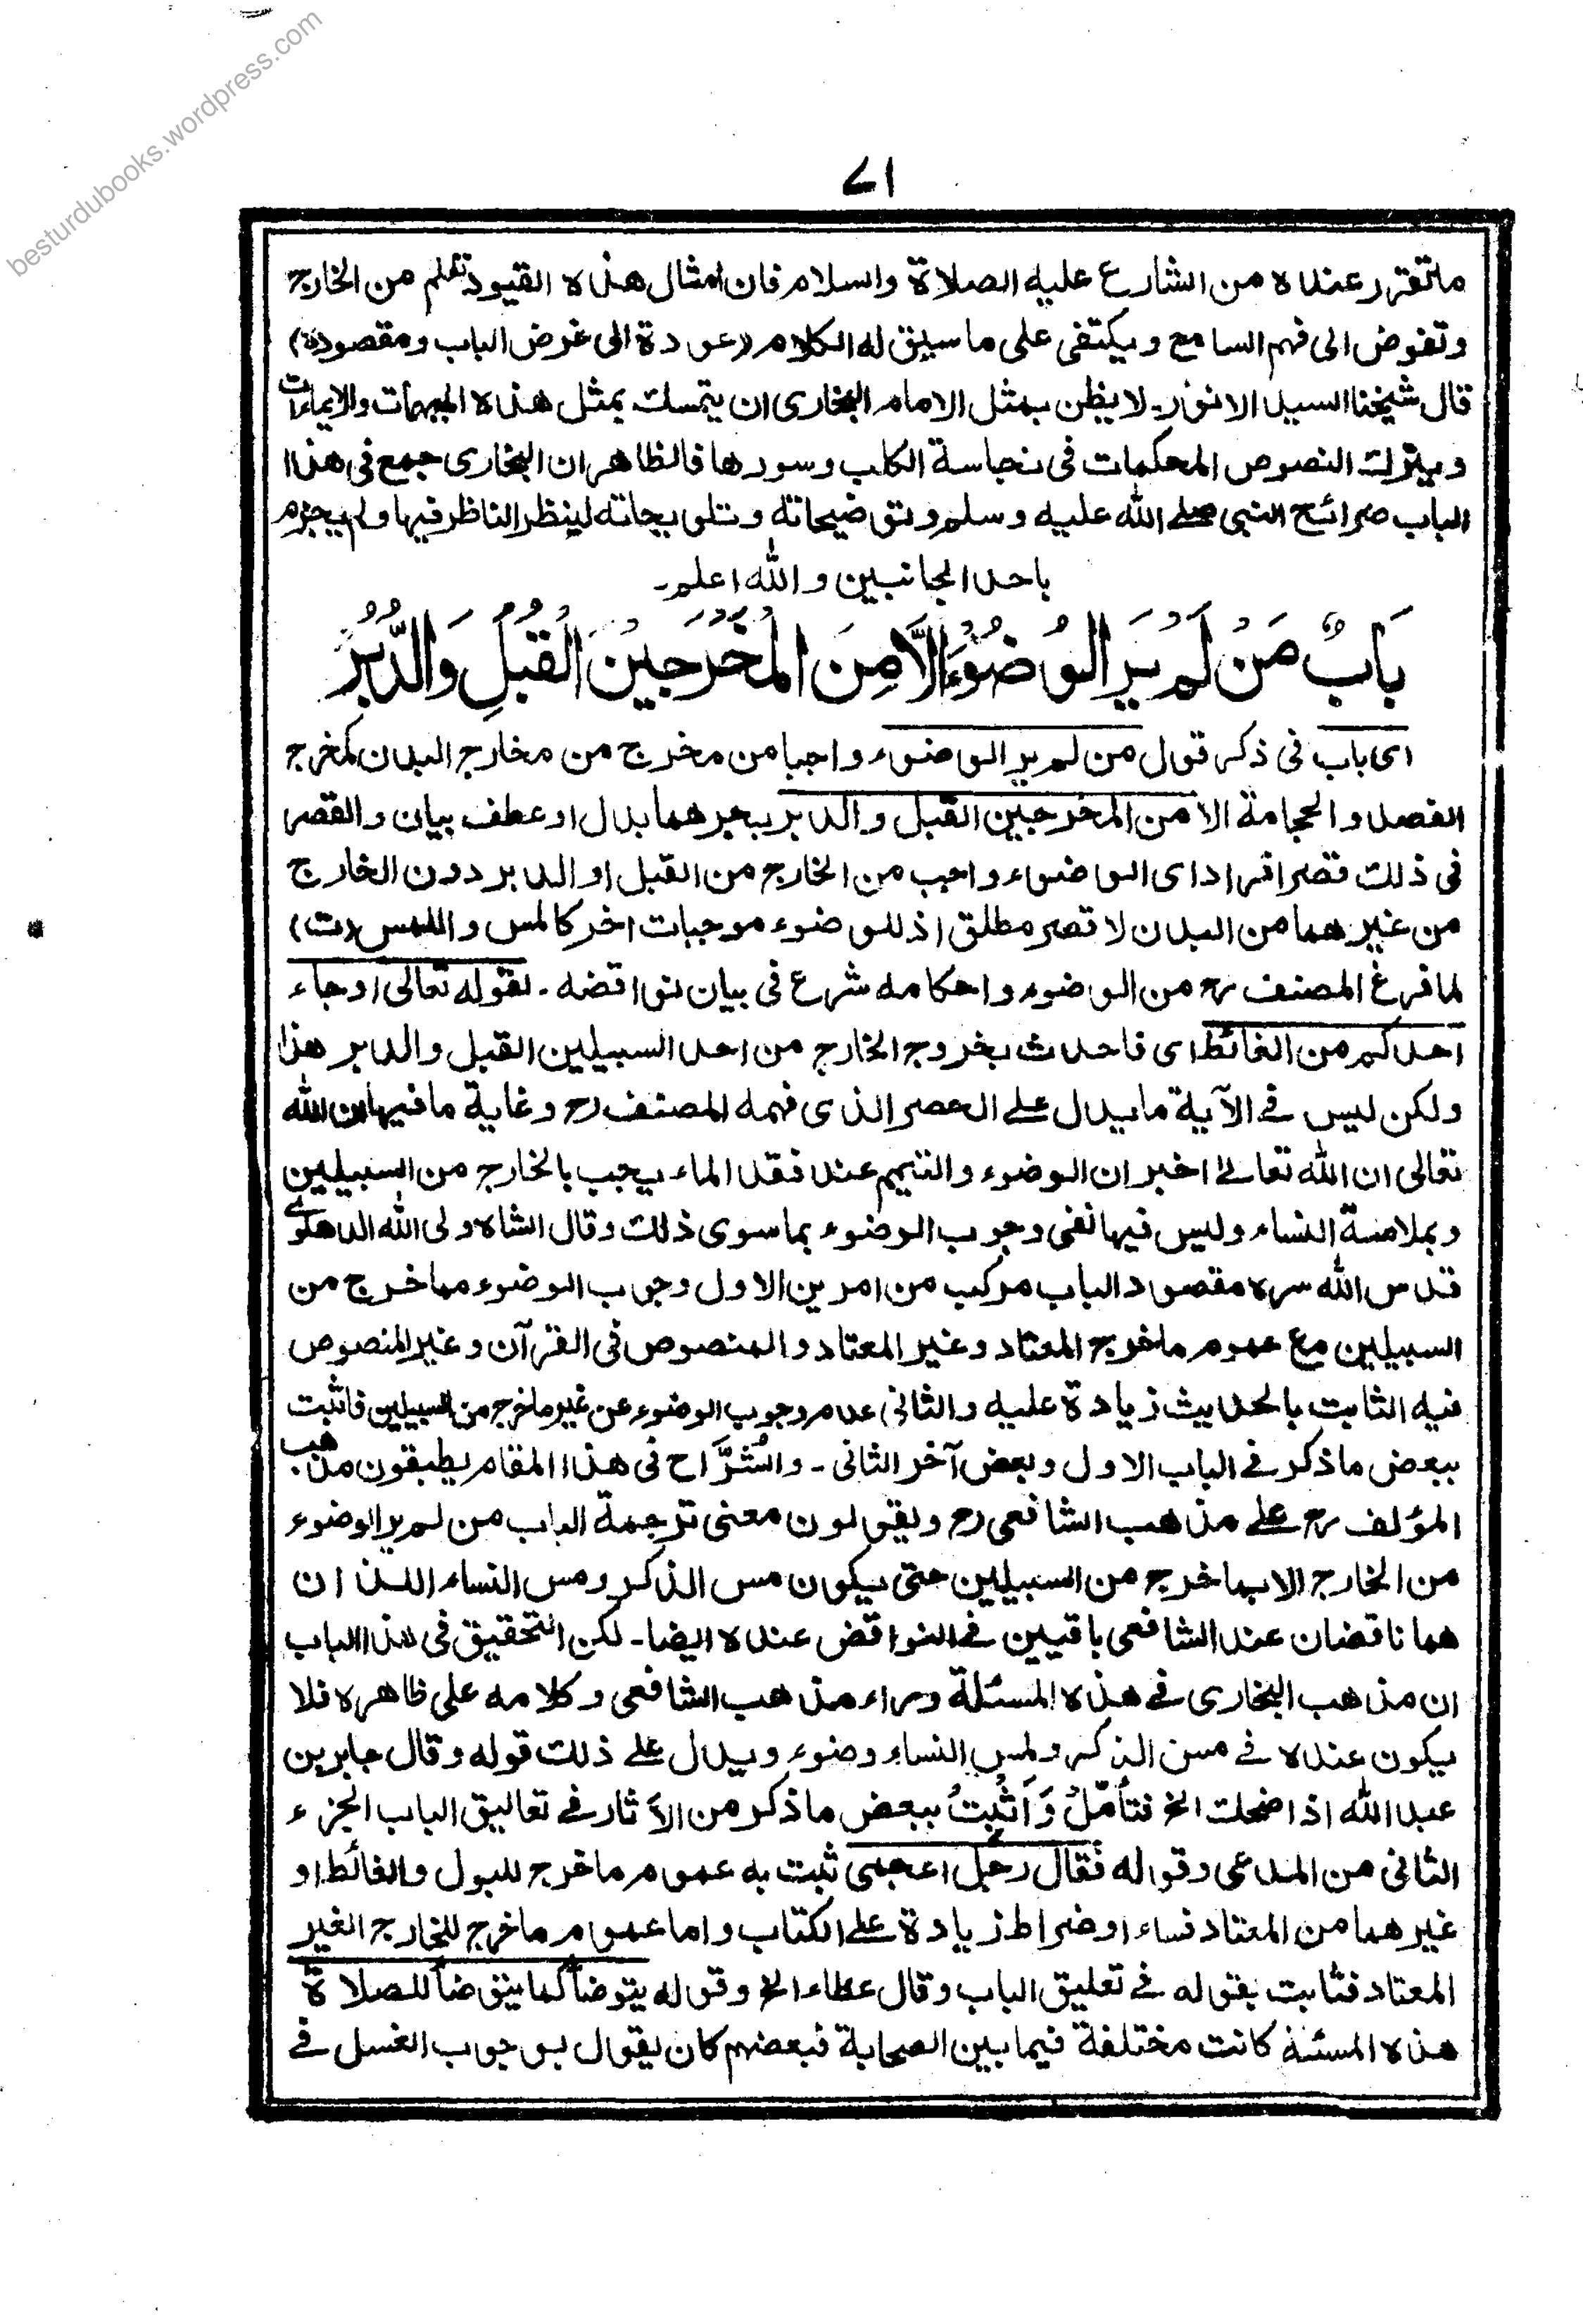 besturdubooks.wordpress.com
۷۱
ماتقرر عنده من الشارع عليه الصلاة والسلام فان امثال هذه القيود تعلم من الخارج
وتفوض الى فهم السامع ويكتفى على ما سيق له الكلام (عودة الى غرض الباب ومقصوده)
قال شيخنا السيد الانور۔ لا يظن بمثل الامام البخارى ان يتمسك بمثل هذه المبهمات والايماءات
ويترك النصوص المحكمات فى نجاسة الكلب وسورها فالظاهر ان البخارى جمع فى هذا
الباب صرائح النبى صلے الله عليه وسلم وتوضيحاته وتلويحاته لينظر الناظر فيها ولم يجزم
باحد الجانبين والله اعلم۔
بَابٌ مَنْ لَمْ يَرَ الْوُضُوْءَ اِلَّا مِنَ الْمُخْرَجَيْنِ الْقُبُلِ وَالدُّبُرِ
اى باب فى ذكر قول من لم ير الوضوء واجبا من مخرج من مخارج البدن كمخرج
الفصد والحجامة الا من المخرجين القبل والدبر بجرهما بدل او عطف بيان والقصر
فى ذلك قصر افراد اى الوضوء واجب من الخارج من القبل او الدبر دون الخارج
من غيرهما من البدن لا قصر مطلق اذ للوضوء موجبات اخر كالمس واللمس (ت)
لما فرغ المصنف رح من الوضوء واحكامه شرع فى بيان نواقضه ۔ لقوله تعالى اوجاء
احدكم من الغائط اى فاحدث بخروج الخارج من احد السبيلين القبل والدبر هذا
ولكن ليس فے الآية ما يدل علے الحصر الذى فهمه المصنف رح وغاية ما فيها ان الله
تعالى ان الله تعالے اخبر ان الوضوء والتيمم عند فقد الماء يجب بالخارج من السبيلين
وبملامسة النساء وليس فيها نفى وجوب الوضوء بما سوى ذلك وقال الشاه ولى الله الدهلوے
قدس الله سره مقصود الباب مركب من امرين الاول وجوب الوضوء مما خرج من
السبيلين مع عموم ماخرج المعتاد وغير المعتاد والمنصوص فى القرآن وغير المنصوص
فيه الثابت بالحديث زيادة عليه والثانى عدم وجوب الوضوء عن غير ماخرج من السبيلين فاثبت
ببعض ماذكر فے الباب الاول وبعض آخر الثانى ۔ والشُّرَّاح فى هذا المقام يطبقون مذهب
المؤلف رح علے مذهب الشافعى رح ويقولون معنى ترجمة الباب من لم ير الوضوء
من الخارج الا بما خرج من السبيلين حتى يكون مس الذكر ومس النساء اللذان
هما ناقضان عند الشافعى باقيين فے النواقض عنده ايضا۔ لكن التحقيق فى هذا الباب
ان مذهب البخارى فے هذه المسئلة وراء مذهب الشافعى وكلامه على ظاهره فلا
يكون عنده فے مس الذكر ولمس النساء وضوء ويدل علے ذلك قوله وقال جابر بن
عبد الله اذا ضحك الخ فتأمّلْ وَاَثْبِتُ ببعض ماذكر من الآثار فے تعاليق الباب الجزء
الثانى من المدعى وقوله فقال رجل اعجمى ثبت به عموم ماخرج للبول والغائط او
غيرهما من المعتاد فساء او ضراط زيادة علے الكتاب واما عموم ماخرج للخارج الغير
المعتاد فثابت بقوله فے تعليق الباب وقال عطاء الخ وقوله يتوضأ كما يتوضأ للصلاة
هذه المسئلة كانت مختلفة فيما بين الصحابة فبعضهم كان يقول بوجوب الغسل فے